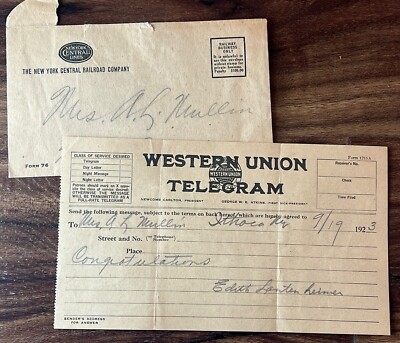 NEW YORK
CENTRAL
LINES
THE NEW YORK CENTRAL RAILROAD COMPANY
RAILWAY
BUSINESS
ONLY
Mrs. A. L. Mullin
FORM 76
CLASS OF SERVICE DESIRED
Telegram
Day Letter
Night Message
Night Letter
Patrons should mark an X opposite
the class of service desired;
OTHERWISE THE MESSAGE
WILL BE TRANSMITTED AS A
FULL-RATE TELEGRAM
Form 1213-A
WESTERN UNION
WESTERN UNION
TELEGRAM
NEWCOMB CARLTON, PRESIDENT
GEORGE W. E. ATKINS, FIRST VICE-PRESIDENT
Receiver's No.
Check
Time Filed
Send the following message, subject to the terms on back hereof, which are hereby agreed to
Ithaca NY 9/19 1923
To Mrs. A L Mullin
Street and No.
Place
Congratulations
Edith
SENDER'S ADDRESS
FOR ANSWER